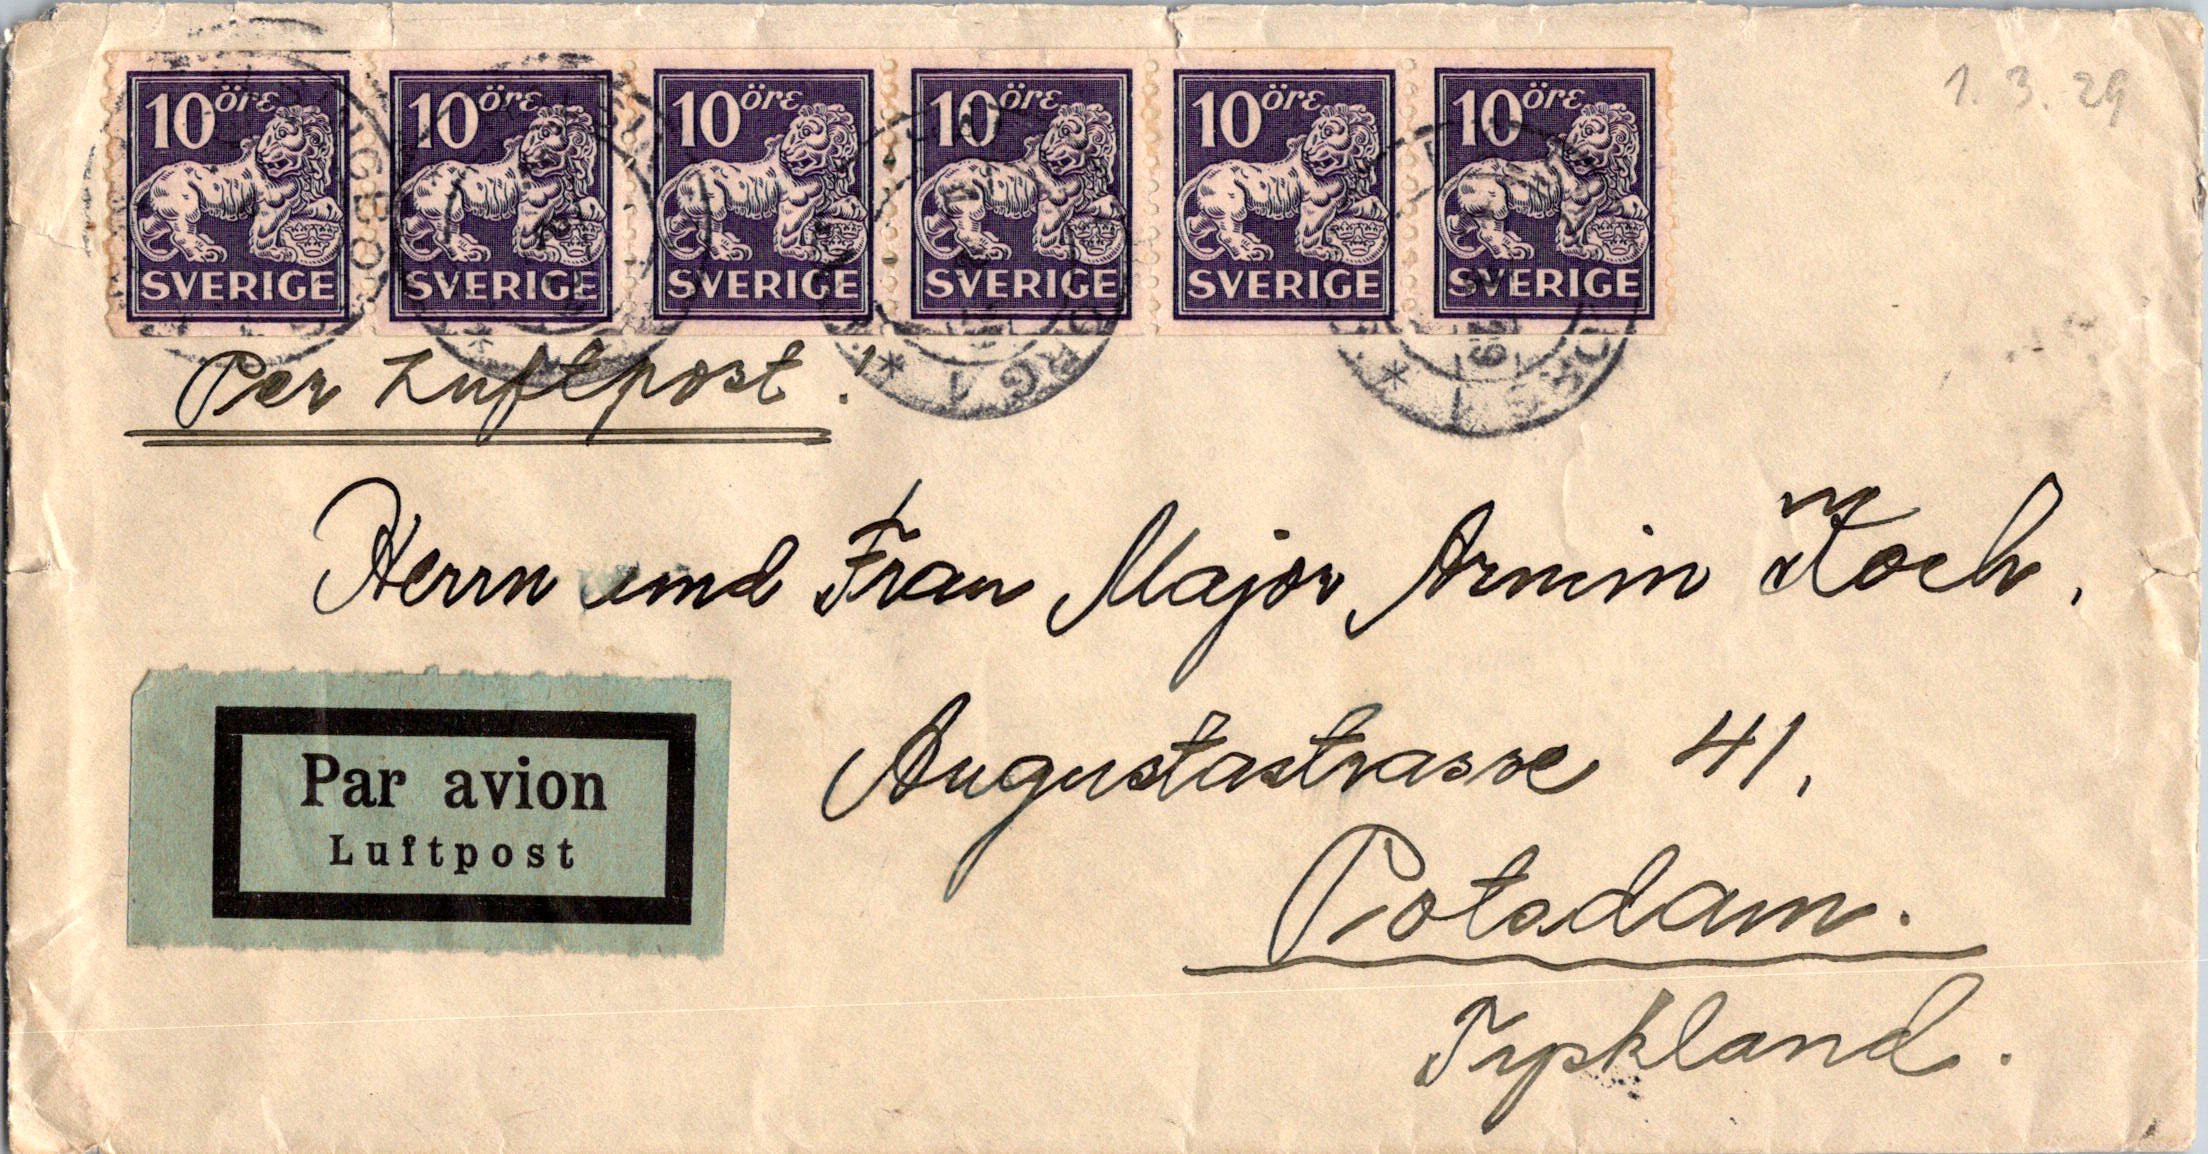 10 öre 10 öre 10 öre 10 öre 10 öre 10 öre
SVERIGE SVERIGE SVERIGE SVERIGE SVERIGE SVERIGE
1. 3. 29
Per Luftpost!
Herrn und Frau Major Armin Koch.
Augustastrasse 41,
Par avion
Luftpost
Potsdam.
Tyskland.